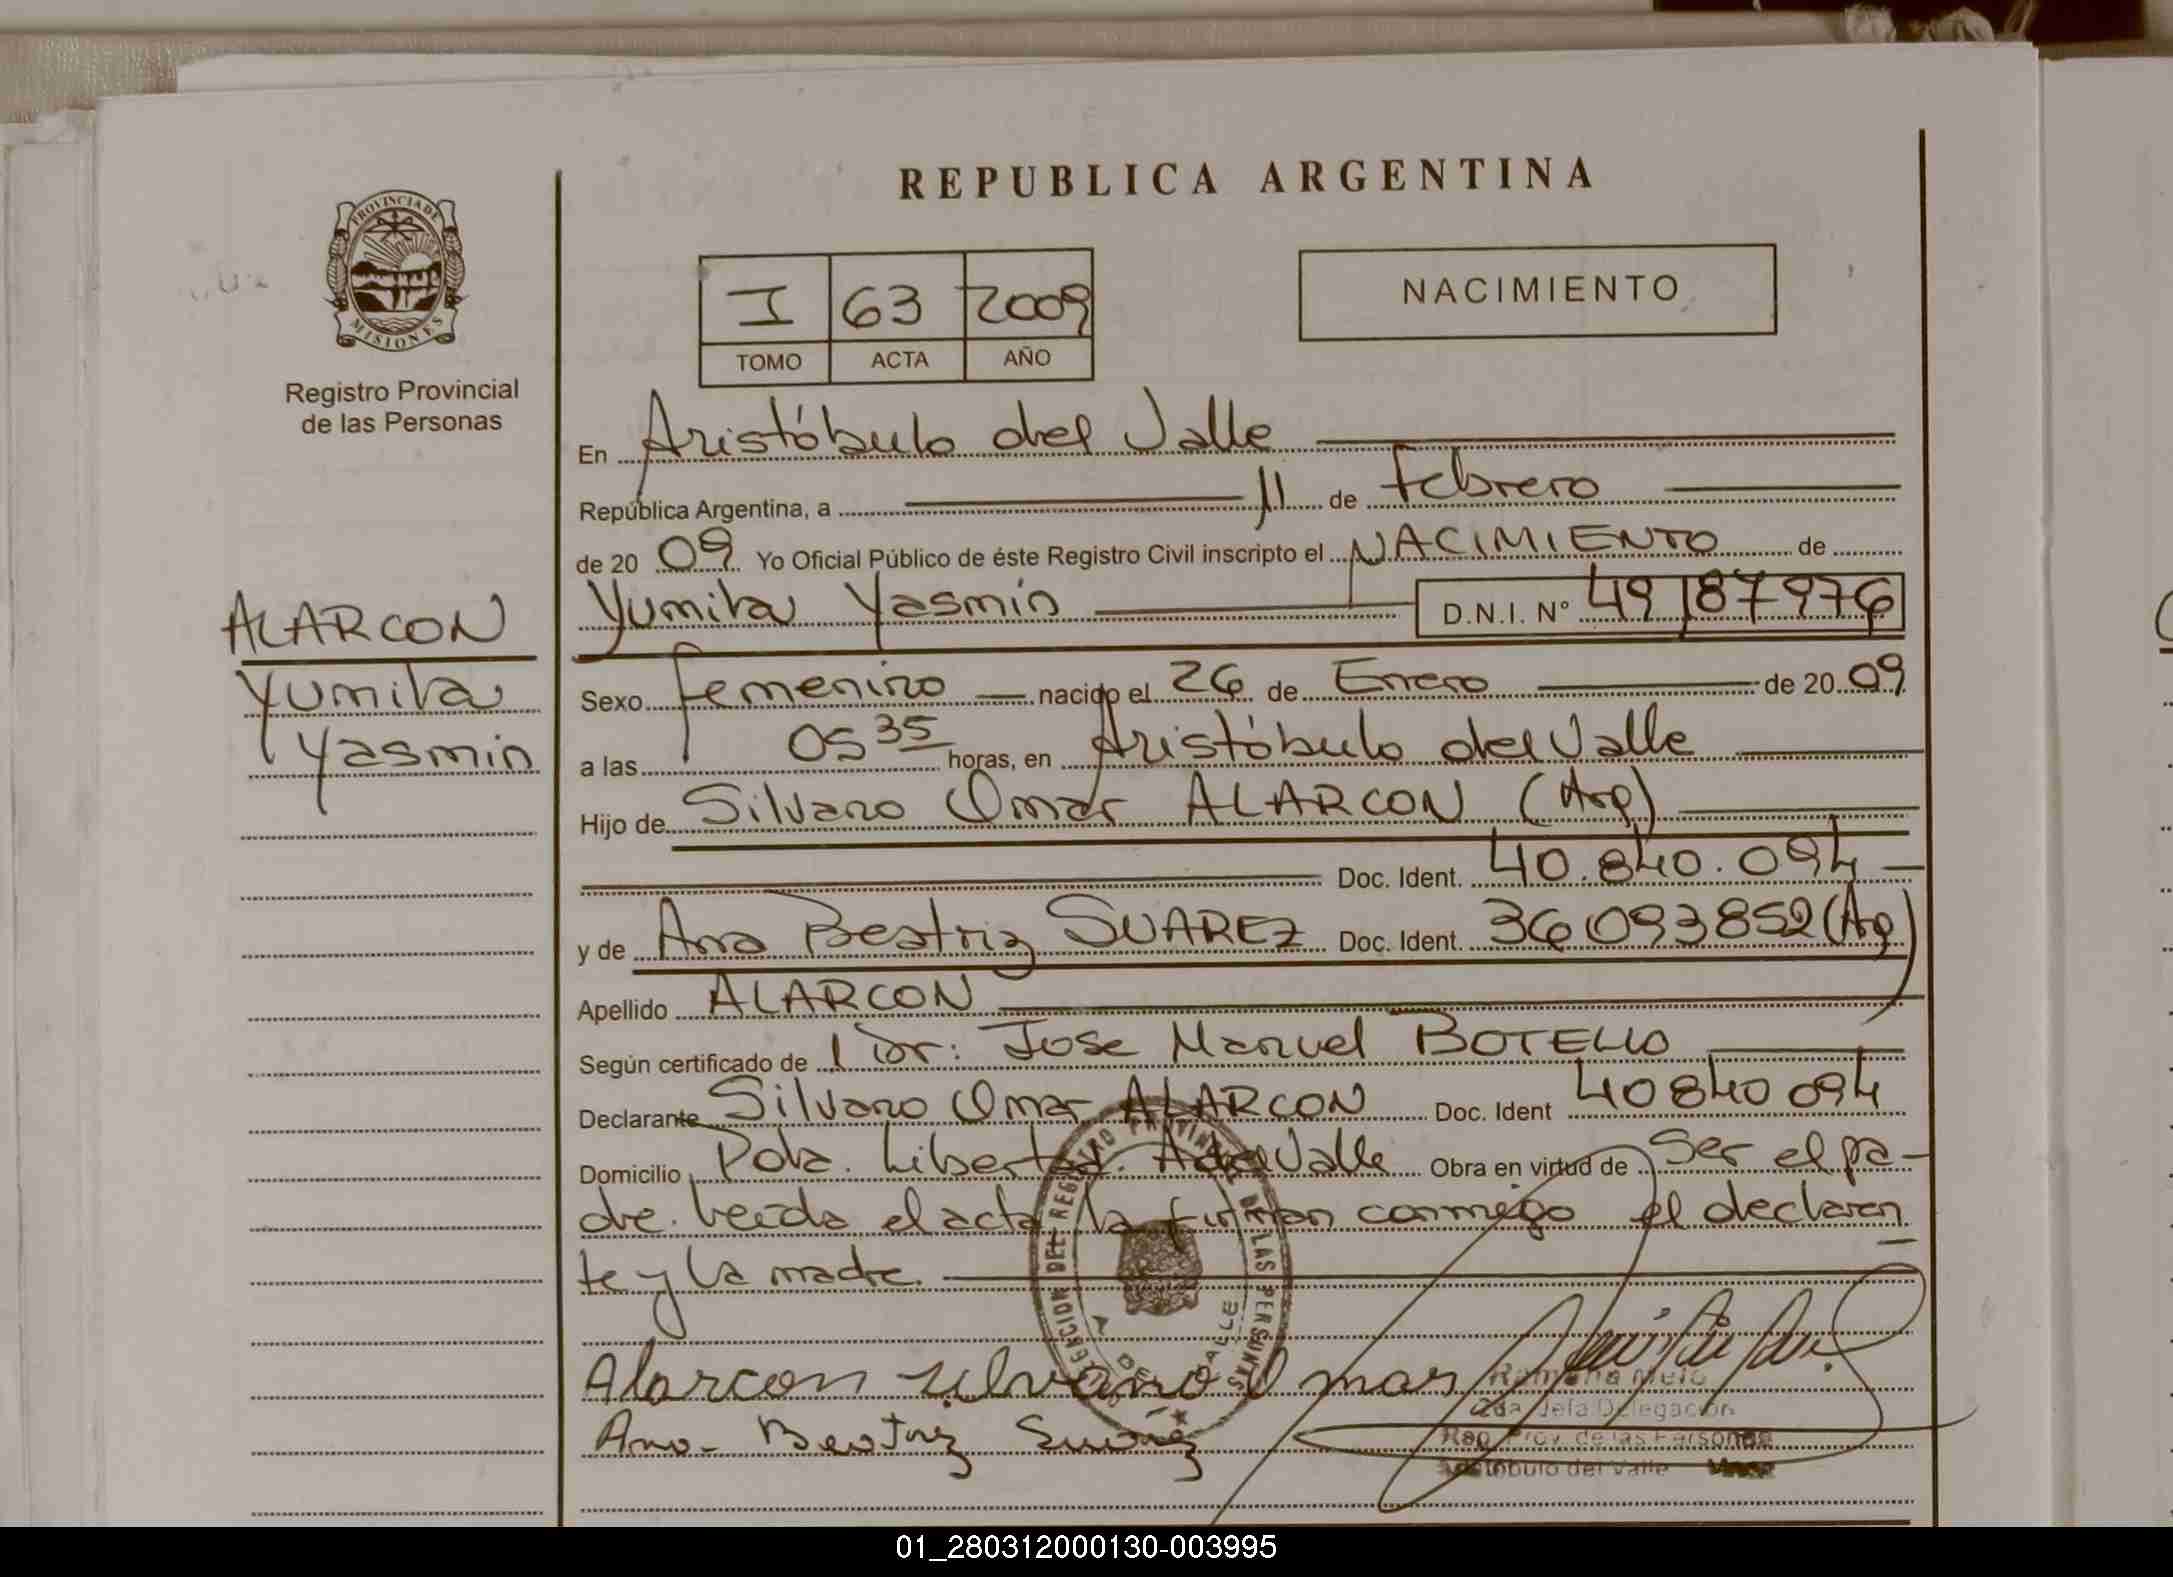 REPUBLICA ARGENTINA
PROVINCIA DE
MISIONES
Registro Provincial
de las Personas
I 63 2009
TOMO ACTA AÑO
NACIMIENTO
En Aristóbulo del Valle
República Argentina, a 11 de Febrero
de 20 09 Yo Oficial Público de éste Registro Civil inscripto el NACIMIENTO de
Yumila Yasmin D.N.I. Nº 49187976
ALARCON
Yumila
Yasmin
Sexo femenino nacido el 26 de Enero de 20 09
a las 05 35 horas, en Aristóbulo del Valle
Hijo de Silvano Omar ALARCON (Arg)
Doc. Ident. 40.840.094
y de Ana Beatriz SUAREZ Doc. Ident. 36093852 (Arg)
Apellido ALARCON
Según certificado de 1 Dr: Jose Manuel BOTELLO
Declarante Silvano Omar ALARCON Doc. Ident 40840094
Domicilio Pda. Libertad. A del Valle Obra en virtud de Ser el pa-
dre. Leida el acta la firman conmigo el declaran
te y la madre.
Alarcon silvano Omar
Ana Beatriz Suárez
Ramona Melo
2da Jefa Delegación
Reg. Prov. de las Personas
Aristóbulo del Valle
01_280312000130-003995